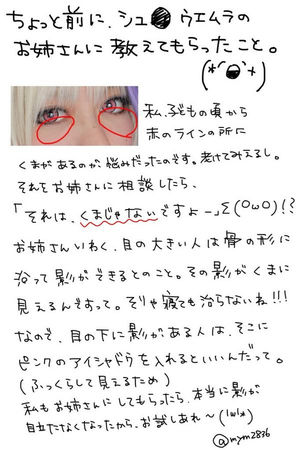 ちょっと前に、シュ●ウエムラの
お姉さんに教えてもらったこと。
(*´●`+)
私、子どもの頃から
赤のラインの所に
くまがあるのが悩みだったのです。老けてみえるし。
それをお姉さんに相談したら、
「それは、くまじゃないですよー」Σ(OωO)!?
お姉さんいわく、目の大きい人は骨の形に
沿って影ができるとのこと。その影がくまに
見えるんですって。そりゃ寝ても治らないね!!!
なので、目の下に影がある人は、そこに
ピンクのアイシャドウを入れるといいんだって。
(ふっくらして見えるため)
私もお姉さんにしてもらったら、本当に影が
目立たなくなったから、お試しあれ〜(ˊωˋ*)
@mym2836